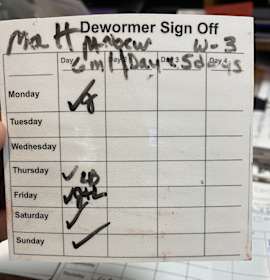 Dewormer Sign Off
Mrs H
W-3
Day
Day 3
Day 4
6ml/Day x 5 days
Monday
Tuesday
Wednesday
Thursday
Friday
Saturday
Sunday